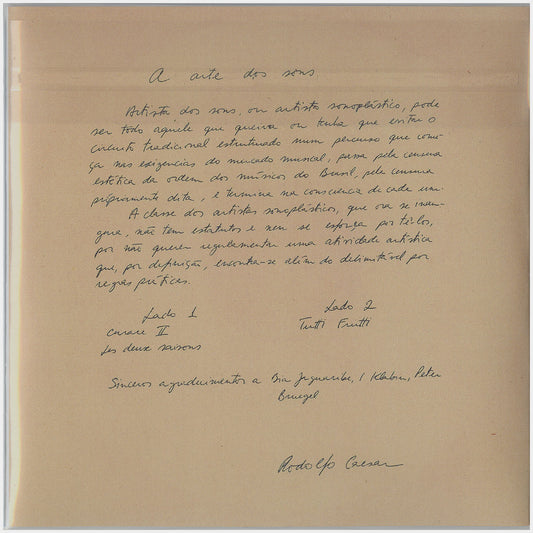 A arte dos sons
Artista dos sons, ou artista sonoplástico, pode
ser todo aquele que queira ou tenha que evitar o
circuito tradicional estruturado num percurso que come-
ça nas exigências do mercado musical, passa pela censura
estética da ordem dos músicos do Brasil, pela censura
propriamente dita, e termina na consciência de cada um.
A classe dos artistas sonoplásticos, que ora se inau-
gura, não tem estatutos e nem se esforça por tê-los,
por não querer regulamentar uma atividade artística
que, por definição, encontra-se além do delimitável por
regras práticas.
Lado 1
Curare II
Les deux saisons
Lado 2
Tutti Frutti
Sinceros agradecimentos a Bia Jaguaribe, I Klabin, Peter
Bruegel
Rodolfo Caesar